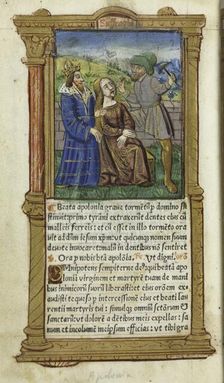 Beata apolonia grave tormẽtũ p domino su
stinuit primo tyrãni extraxerũt dentes eius cũ
malleis ferreis: et cũ esset in illo tormẽto ora
uit ad dñm iesum xp̃m: ut quicunq nomen suum
deuote inuocaret malum in dentibus nõ sentiret
Ora p nobis btã apolonia. ut digni
Omnipotens sempiterne deus qui beatã apo
loniã virginem et martyrem tuam de ma
nibus inimicorũ suorũ liberasti et eius orõem ex
audisti te queso p intercessionẽ eius et beati lau
rentii martyris tui: simulq omniũ sctõrum et
Sanctarũ ut dolorem a dẽtibus meis expellas: sa
num et incolumem me ipsum efficias: ut tibi gra
Apolonia